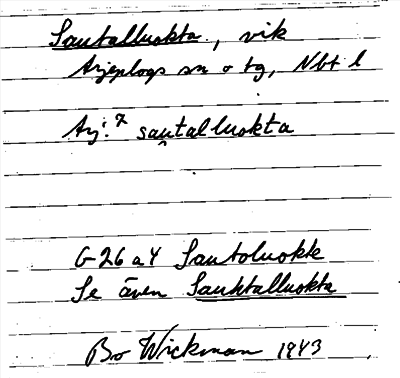 Sautalluokta, vik
Arjeplogs sn o tg, Nbt l
Arj.⁷ sau̯talluokta
G-26 a 4 Sautoluokte
Se även Sauktalluokta
Bo Wickman 1943